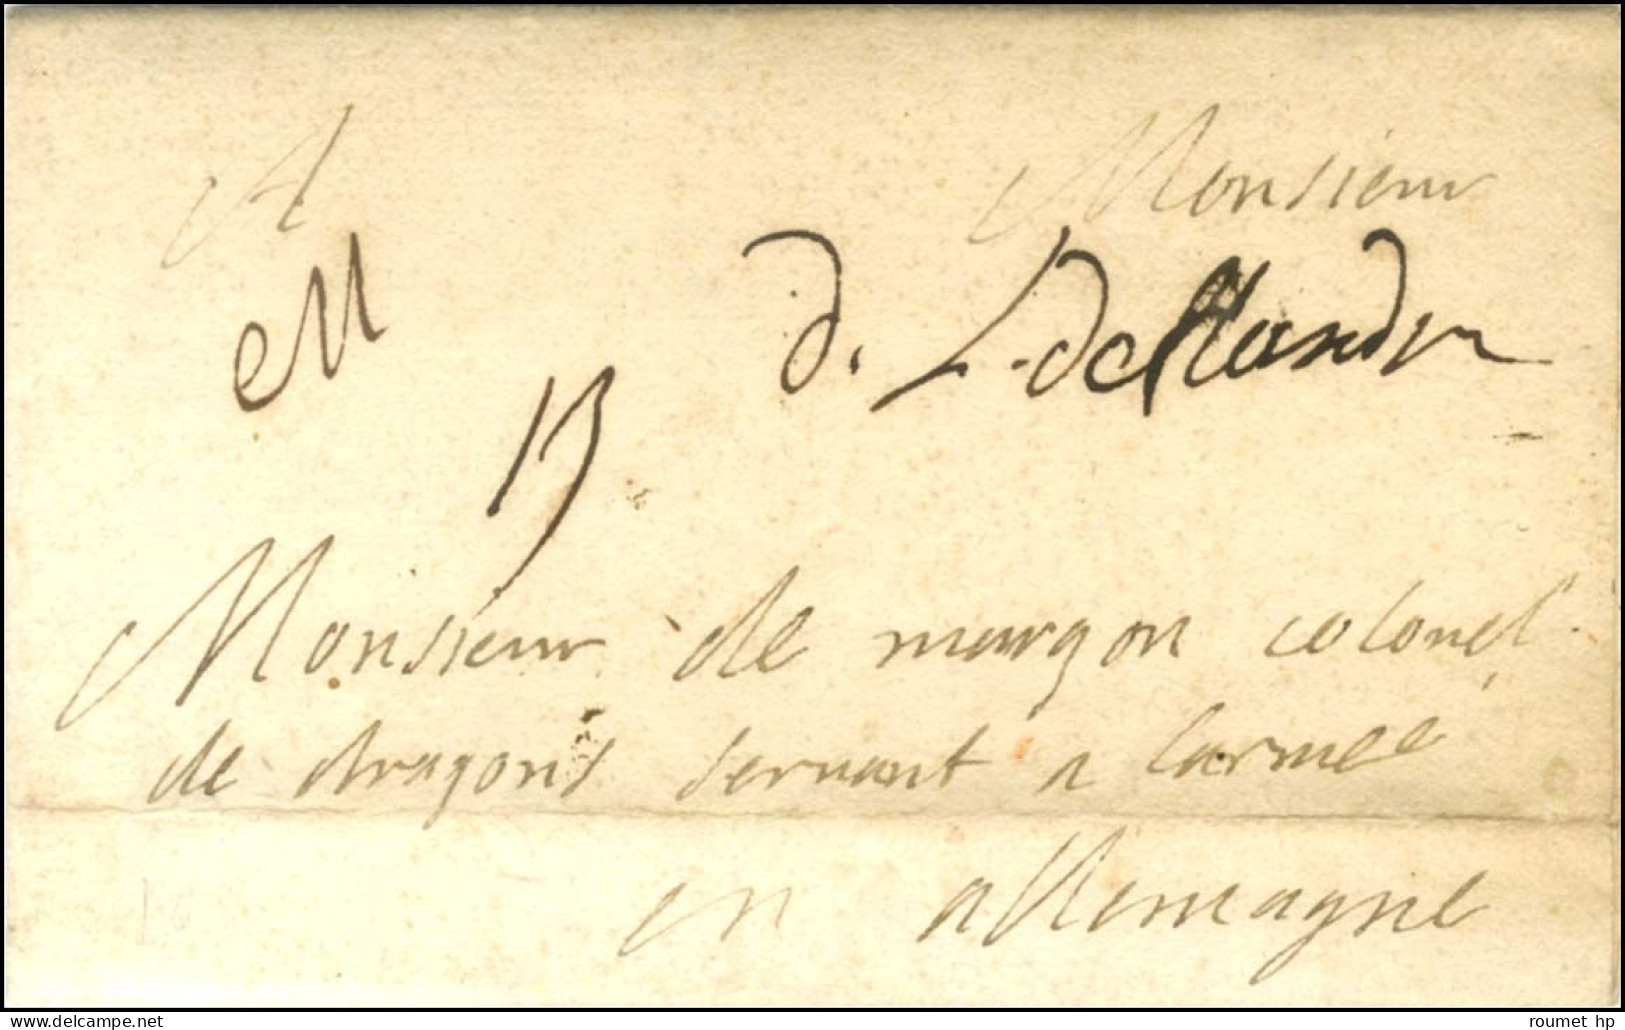 A Monsieur
d. L. de flandre
Monsieur de margon colonel
de dragons servant a larmee
en allemagne
roumet_hp